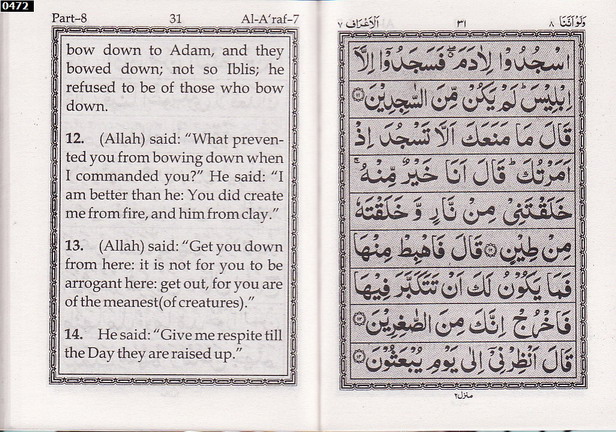 0472
Part–8 31 Al-A'raf–7
bow down to Adam, and they
bowed down; not so Iblis; he
refused to be of those who bow
down.
12. (Allah) said: “What preven-
ted you from bowing down when
I commanded you?” He said: “I
am better than he: You did create
me from fire, and him from clay.”
13. (Allah) said: “Get you down
from here: it is not for you to be
arrogant here: get out, for you are
of the meanest(of creatures).”
14. He said: “Give me respite till
the Day they are raised up.”
وَلَوْ اَنَّنَا ٨ ٣١ اَلْاَعْرَاف ٧
اسْجُدُوْا لِاٰدَمَ ۖ فَسَجَدُوْۤا اِلَّاۤ
اِبْلِيْسَ ؕ لَمْ يَكُنْ مِّنَ السّٰجِدِيْنَ ۝١١
قَالَ مَا مَنَعَكَ اَلَّا تَسْجُدَ اِذْ
اَمَرْتُكَ ؕ قَالَ اَنَا خَيْرٌ مِّنْهُ ۚ
خَلَقْتَنِيْ مِنْ نَّارٍ وَّ خَلَقْتَهٗ
مِنْ طِيْنٍ ۝١٢ قَالَ فَاهْبِطْ مِنْهَا
فَمَا يَكُوْنُ لَكَ اَنْ تَتَكَبَّرَ فِيْهَا
فَاخْرُجْ اِنَّكَ مِنَ الصّٰغِرِيْنَ ۝١٣
قَالَ اَنْظِرْنِيْۤ اِلٰى يَوْمِ يُبْعَثُوْنَ ۝١٤
منزل٢